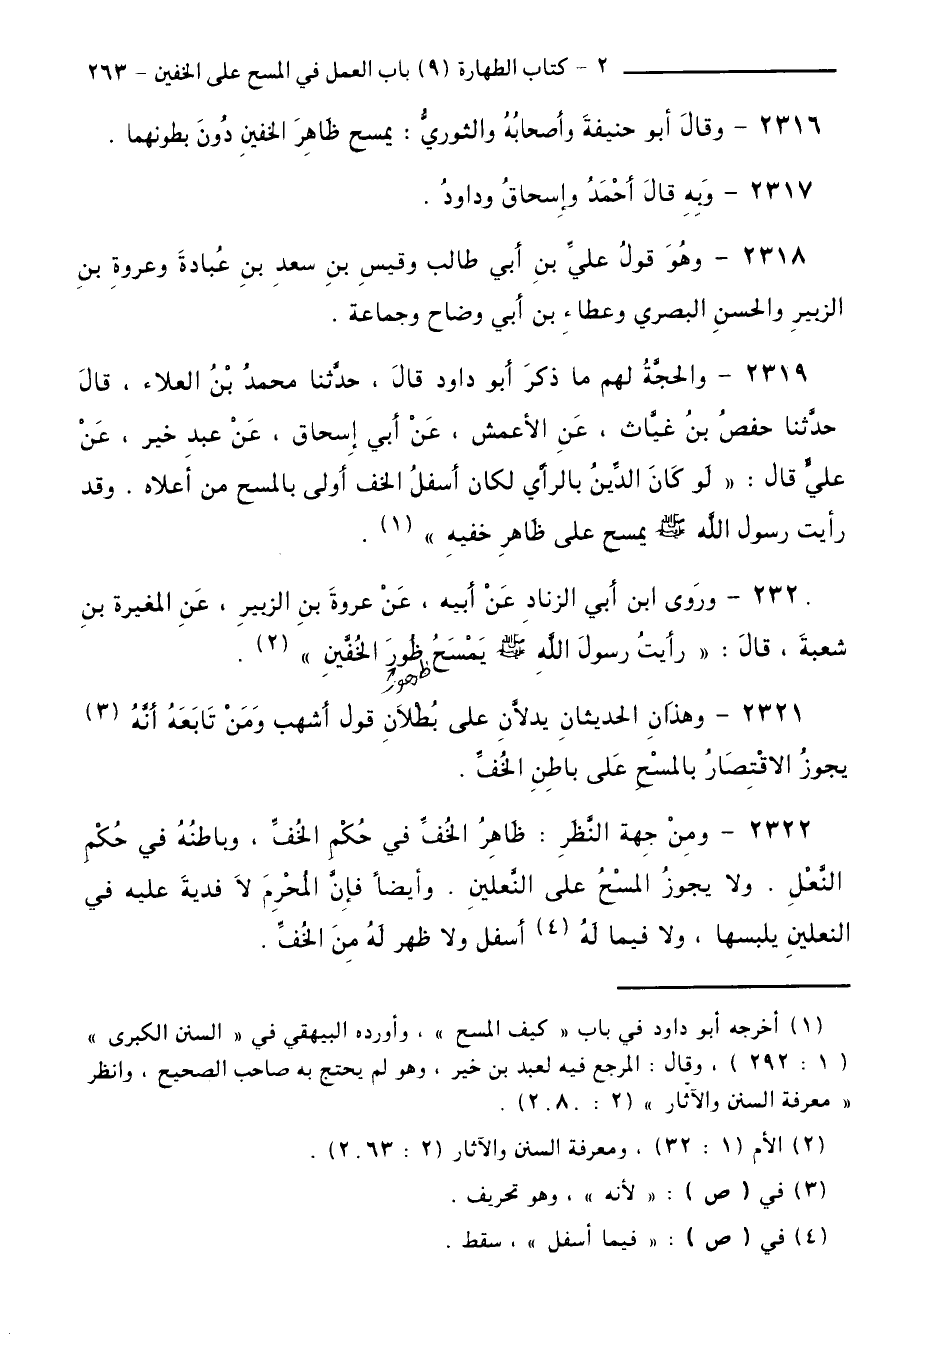 ٢ - كتاب الطهارة (٩) باب العمل في المسح على الخفين - ٢٦٣
٢٣١٦ - وقالَ أبو حنيفةَ وأصحابُهُ والثوريُّ : يمسح ظَاهِرَ الخفينِ دُونَ بطونهما .
٢٣١٧ - وَبِهِ قالَ أحْمَدُ وإسحاقُ وداودُ .
٢٣١٨ - وهُوَ قولُ عليِّ بنِ أبي طالب وقيسِ بنِ سعدِ بنِ عُبادةَ وعروةِ بنِ
الزبيرِ والحسنِ البصري وعطاءِ بن أبي وضاح وجماعة .
٢٣١٩ - والحجَّةُ لهم ما ذكرَ أبو داود قالَ ، حدَّثنا محمدُ بْنُ العلاء ، قالَ
حدَّثنا حفصُ بنُ غيَّاث ، عَنِ الأعمش ، عَنْ أبي إسحاق ، عَنْ عبدِ خير ، عَنْ
عليٍّ قال : « لَو كَانَ الدِّينُ بالرأي لكان أسفلُ الخف أولى بالمسح من أعلاه . وقد
رأيت رسول الله ﷺ يمسح على ظاهرِ خفيهِ » (١) .
٢٣٢٠ - وروَى ابن أبي الزنادِ عَنْ أبيه ، عَنْ عروةَ بنِ الزبير ، عَنِ المغيرة بنِ
شعبةَ ، قالَ : « رأيتُ رسولَ اللَّهِ ﷺ يَمْسَحُ ظُورَ الخُفَّينِ » (٢) .
ظهور
٢٣٢١ - وهذَانِ الحديثان يدلاَّنِ على بُطْلاَنِ قول أشهب وَمَنْ تَابَعَهُ أنَّهُ (٣)
يجوزُ الاقْتِصَارُ بالمسْحِ عَلى باطنِ الخُفِّ .
٢٣٢٢ - ومِنْ جهة النَّظَرِ : ظاهِرُ الخُفِّ في حُكْمِ الخُفِّ ، وباطنُهُ في حُكْمِ
النَّعْلِ . ولا يجوزُ المسْحُ على النَّعلينِ . وأيضاً فإنَّ المُحْرِمَ لاَ فديةَ عليه في
النعلينِ يلبسها ، ولا فيما لَهُ (٤) أسفل ولا ظهر لَهُ مِنَ الخُفِّ .
(١) أخرجه أبو داود في باب « كيف المسح » ، وأورده البيهقي في « السنن الكبرى »
( ١ : ٢٩٢ ) ، وقال : المرجع فيه لعبد بن خير ، وهو لم يحتج به صاحب الصحيح ، وانظر
« معرفة السنن والآثار » (٢ : ٢٠٨٠) .
(٢) الأم (١ : ٣٢) ، ومعرفة السنن والآثار (٢ : ٢٠٦٣) .
(٣) في ( ص ) : « لأنه » ، وهو تحريف .
(٤) في ( ص ) : « فيما أسفل » ، سقط .